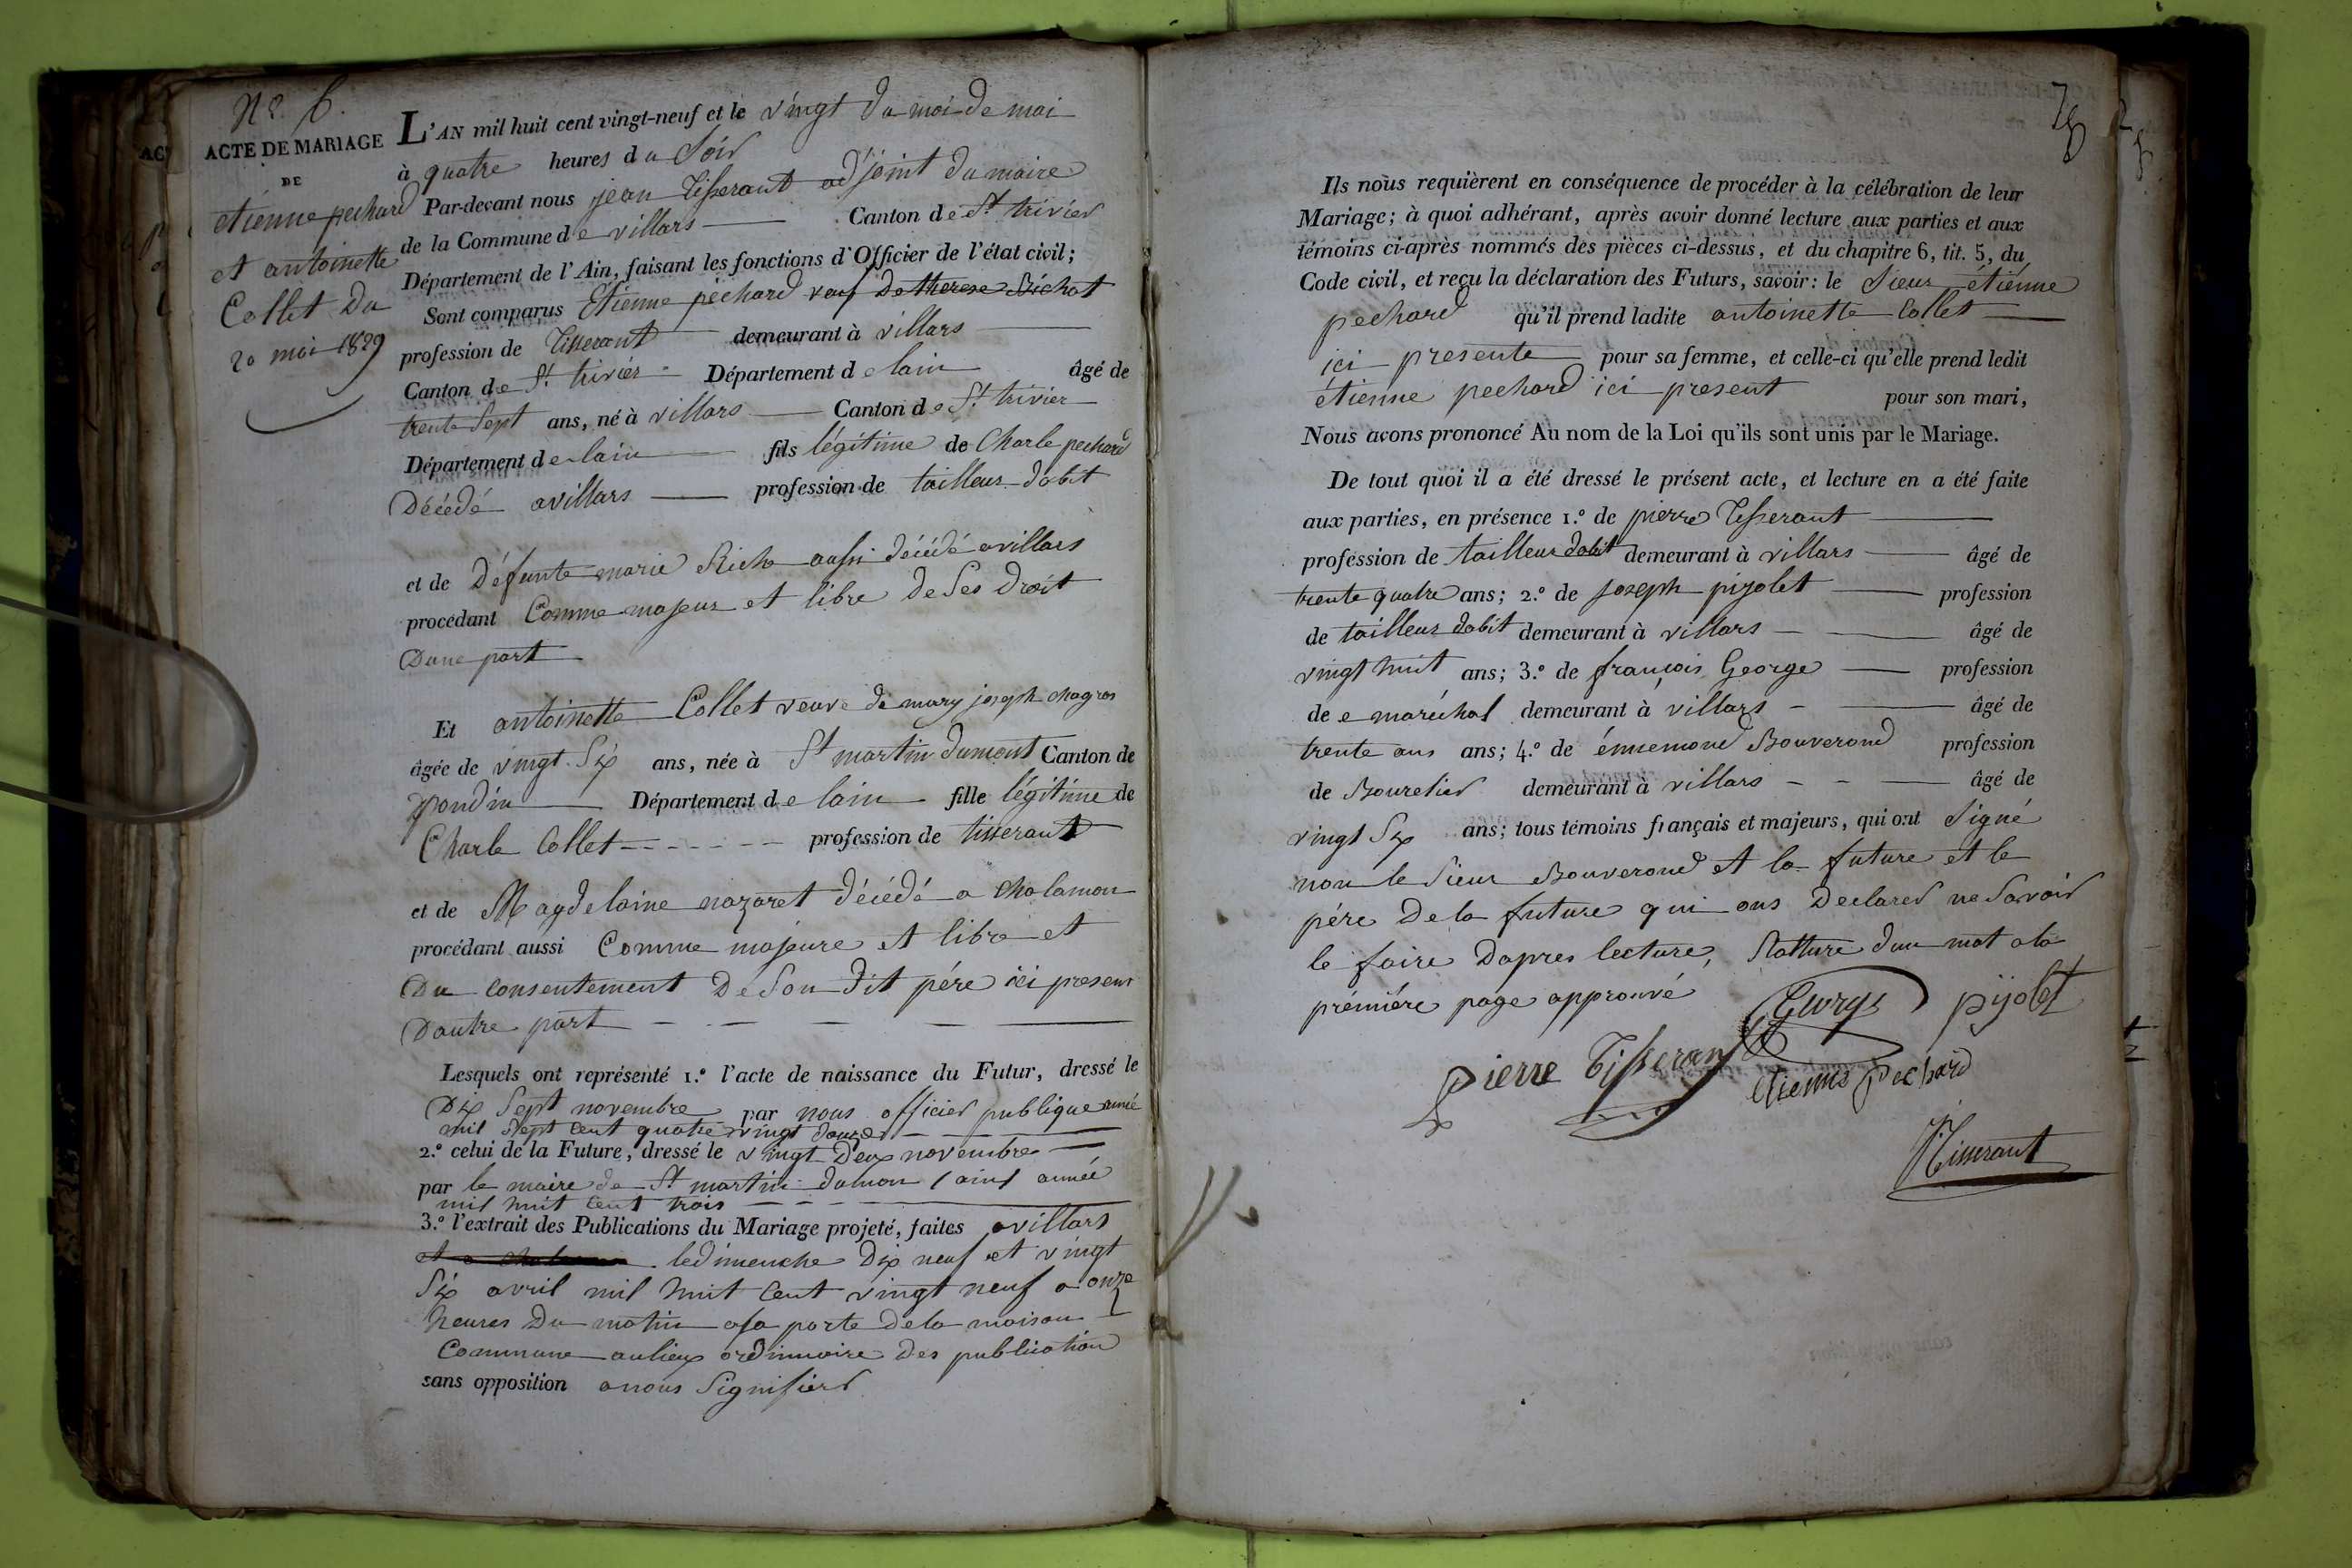 N.º 6.
ACTE DE MARIAGE
DE
etienne pechard
et antoinette
Collet Du
20 mai 1829
L'AN mil huit cent vingt-neuf et le vingt du moi de mai
à quatre heures du Soir
Par-devant nous jean Tisserant adjoint du maire
de la Commune de villars Canton de St trivier
Département de l'Ain, faisant les fonctions d'Officier de l'état civil;
Sont comparus Etienne pechard veuf de therese Bichat
profession de Tisserant demeurant à villars
Canton de St. trivier Département de lain âgé de
trente Sept ans, né à villars Canton de St trivier
Département de lain fils légitime de Charle pechard
Décédé avillars profession de tailleur dabit
et de Défunte marie Riche aussi décédé avillars
procédant Comme majeur et libre de Ses Droit
Dune part
Et antoinette Collet veuve de mury joseph chagros
âgée de vingt Six ans, née à St martin dumont Canton de
pondin Département de lain fille légitime de
Charle Collet profession de tisserant
et de Magdelaine nazaret décédé a chalamon
procédant aussi Comme majeure et libre et
Du consentement De Son dit pére ici present
Dautre part
Lesquels ont représenté 1.º l'acte de naissance du Futur, dressé le
Dix Sept novembre par nous officier publique année
mil Sept Cent quatre vingt douze
2.º celui de la Future, dressé le vingt Deux novembre
par le maire de St martin dumon (ain) année
mil huit Cent trois
3.º l'extrait des Publications du Mariage projeté, faites avillars
le dimenche Dix neuf et vingt
Six avril mil huit Cent vingt neuf a onze
heures Du matin a la porte De la maison
Commune aulieux ordinnaire Des publication
sans opposition anous Signifier
78
Ils nous requièrent en conséquence de procéder à la célébration de leur
Mariage; à quoi adhérant, après avoir donné lecture aux parties et aux
témoins ci-après nommés des pièces ci-dessus, et du chapitre 6, tit. 5, du
Code civil, et reçu la déclaration des Futurs, savoir: le Sieur étiénne
pechard qu'il prend ladite antoinette Collet
ici presente pour sa femme, et celle-ci qu'elle prend ledit
étienne pechard ici present pour son mari,
Nous avons prononcé Au nom de la Loi qu'ils sont unis par le Mariage.
De tout quoi il a été dressé le présent acte, et lecture en a été faite
aux parties, en présence 1.º de pierre Tisserant
profession de tailleur dabit demeurant à villars âgé de
trente quatre ans; 2.º de joseph pizolet profession
de tailleur dabit demeurant à villars âgé de
vingt huit ans; 3.º de françois George profession
de e maréchal demeurant à villars âgé de
trente ans ans; 4.º de énnemond Bouverond profession
de Bourelier demeurant à villars âgé de
vingt Six ans; tous témoins français et majeurs, qui ont Signé
non le Sieur Bouverond et la future et le
pére De la future qui ons Declarer ne Savoir
le faire Dapres lecture, Ratture dun mot a la
première page approuvé
George pijolet
pierre Tisserant
etienne pechard
Tisserant